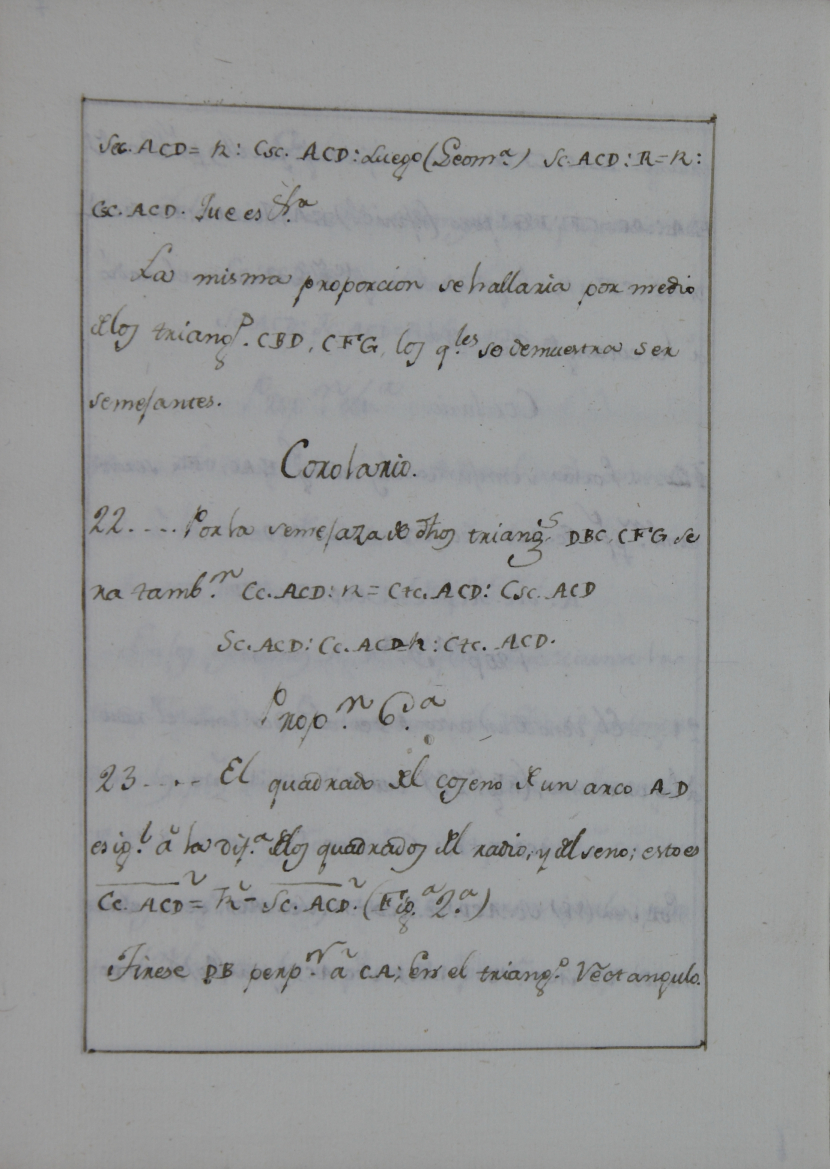 Sec. ACD = R: Csc. ACD: Luego (Geom.ª) Sc. ACD: R = R:
Csc. ACD. Que es
La misma proporcion se hallaria por medio
de los triang.s CBD, CFG, los q.les se demuestra ser
semejantes.
Corolario.
22.... Por la semejaza de dhos triang.s DBC, CFG se
ra tamb.n Cc. ACD: R = Ctc. ACD: Csc. ACD
Sc. ACD: Cc. ACD = R: Ctc. ACD.
Prop.n 6.ª
23.... El quadrado del coseno de un arco AD
es ig.l à la dif.ª de los quadrados del radio, y del seno; esto es
Cc. ACD² = R² - Sc. ACD². (Fig.ª 2.ª)
Tirese DB perp.r à CA; En el triang.o Rectangulo.